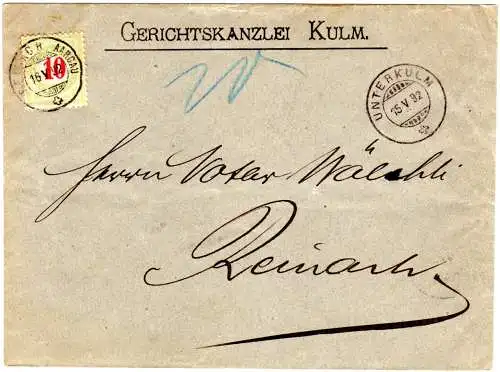 GERICHTSKANZLEI KULM.
10
AARGAU
16 V
UNTERKULM
15.V.92
Herrn Notar Wälchli
Reinach.